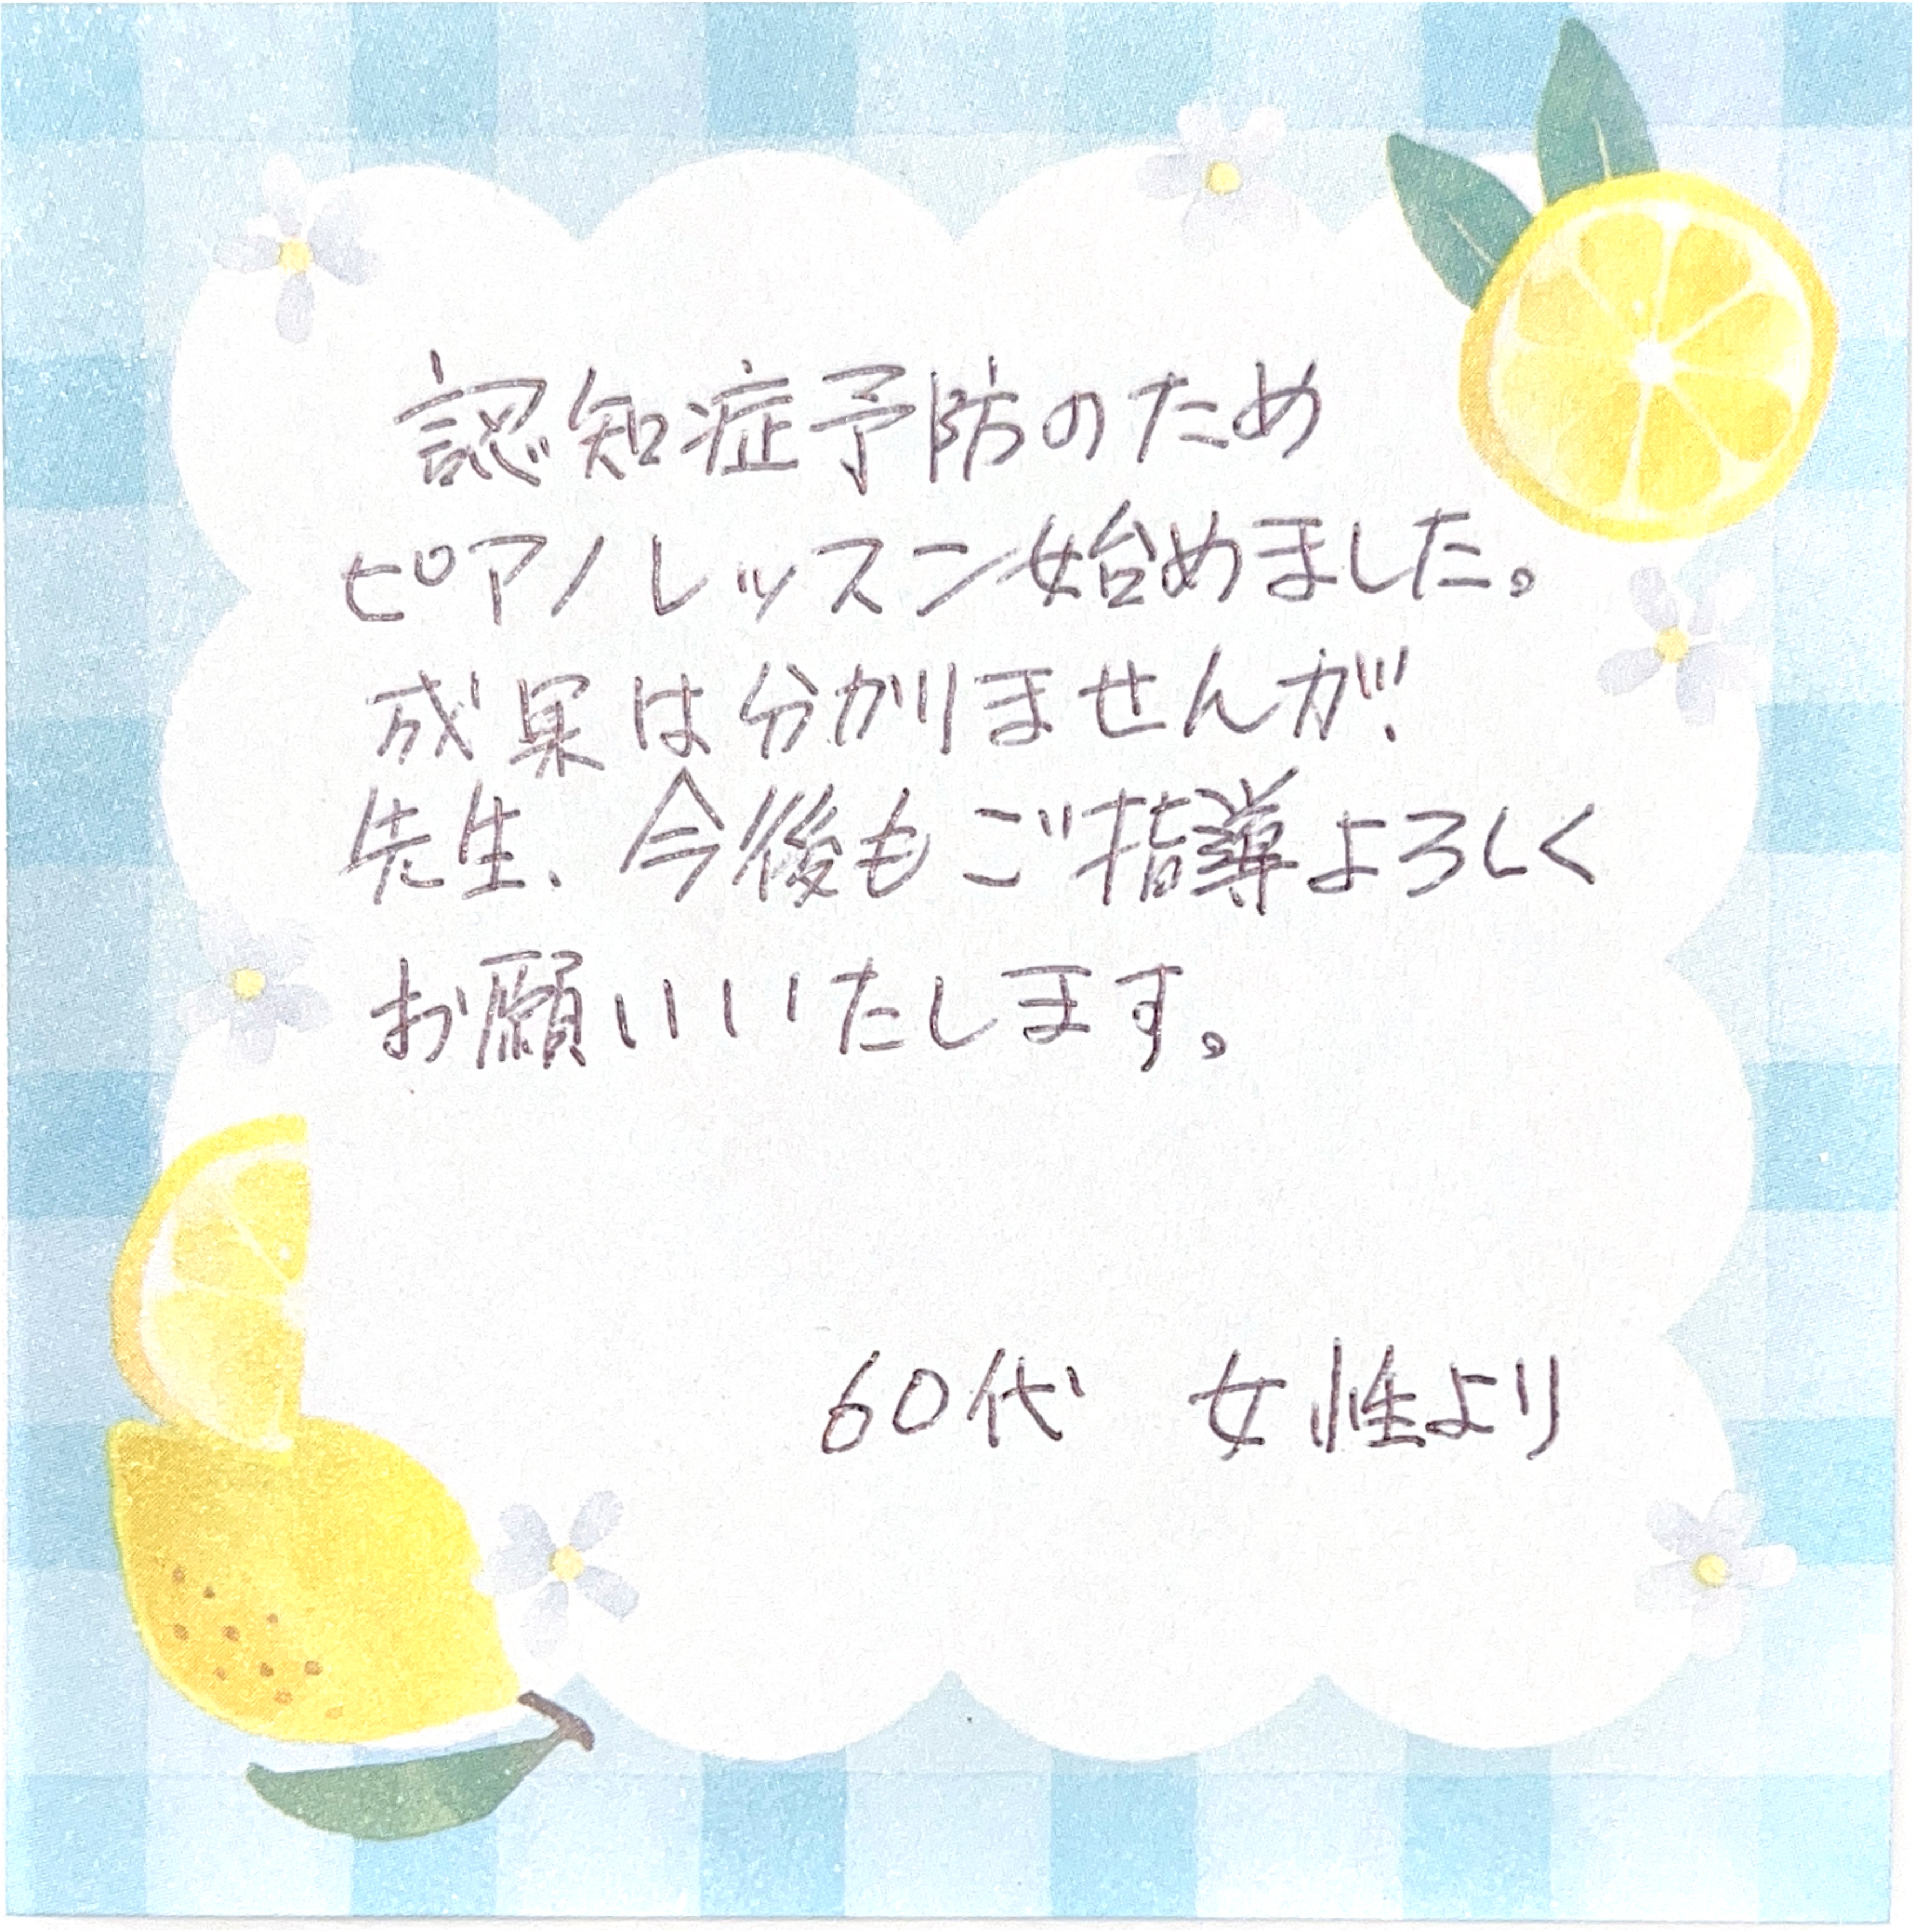 認知症予防のため
ピアノレッスン始めました。
成果は分かりませんが!
先生、今後もご指導よろしく
お願いいいたします。
60代 女性より